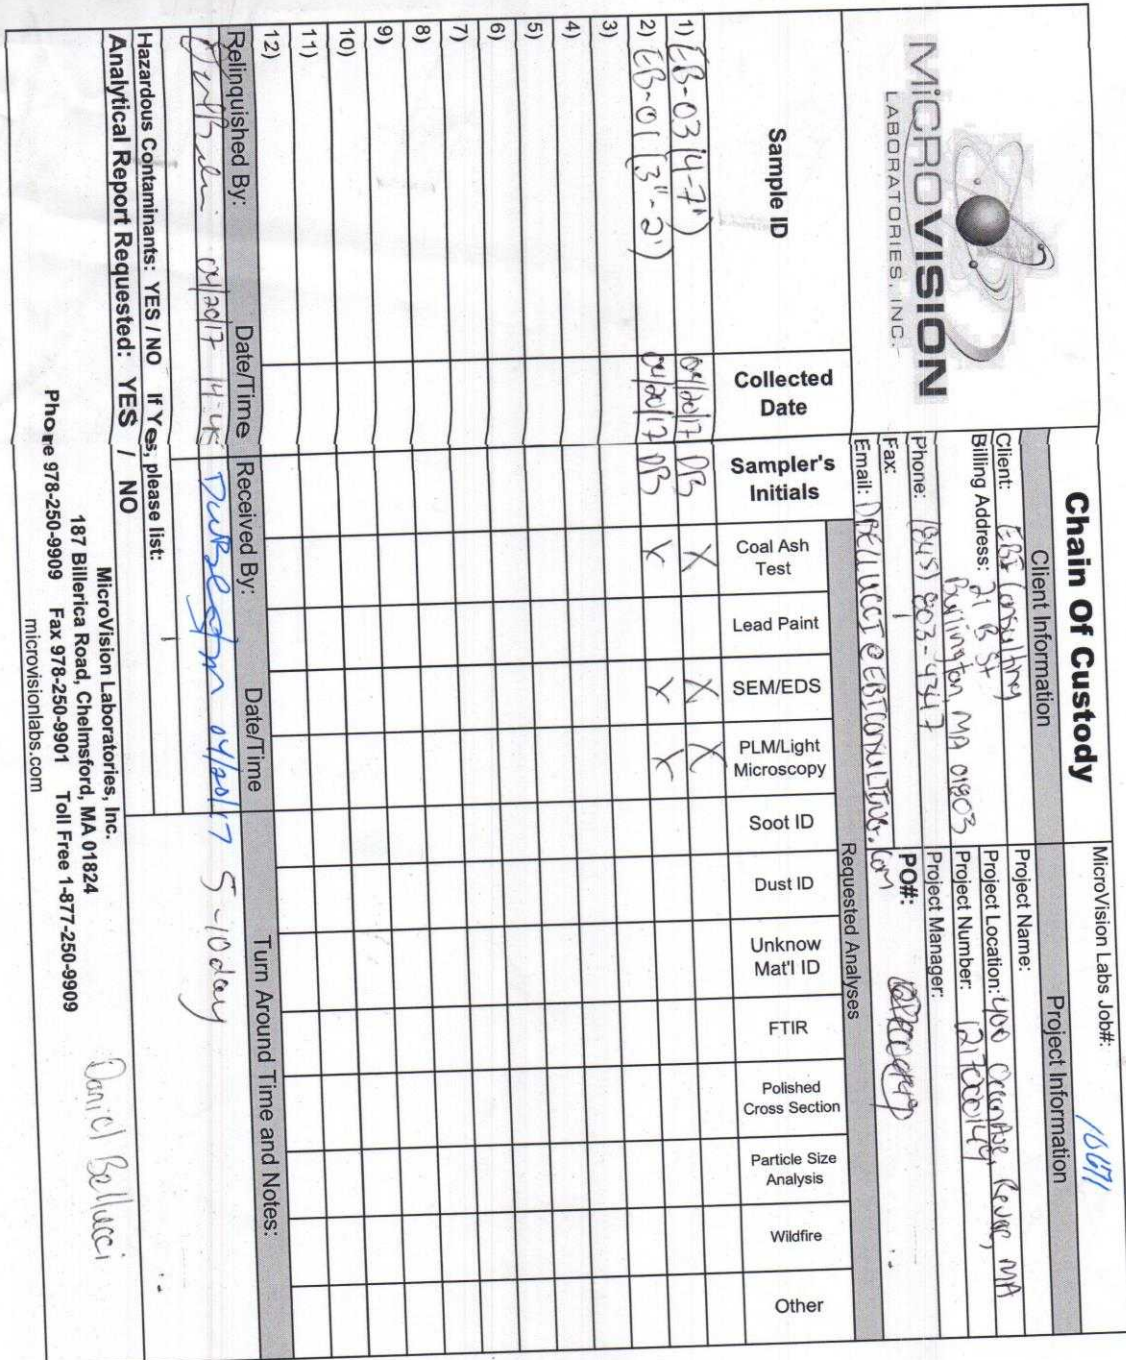 MICROVISION
LABORATORIES, INC.
Chain Of Custody
MicroVision Labs Job#:
Client Information
Project Information
Client: EBI Consulting
Billing Address: 21 B St
Burlington, MA 01803
Phone: (845) 803-4347
Fax:
Email: DBELLUCCI@EBICONSULTING.com
Project Name:
Project Location: 400 Ocean Ave, Revere, MA
Project Number: 1217000149
Project Manager:
PO#:
Requested Analyses
Sample ID
Collected Date
Sampler's Initials
Coal Ash Test
Lead Paint
SEM/EDS
PLM/Light Microscopy
Soot ID
Dust ID
Unknow Mat'l ID
FTIR
Polished Cross Section
Particle Size Analysis
Wildfire
Other
1) EB-03 (4-7') 04/20/17 DB X X X
2) EB-01 (3"-2') 04/20/17 DB X X X
3)
4)
5)
6)
7)
8)
9)
10)
11)
12)
Relinquished By: Date/Time Received By: Date/Time Turn Around Time and Notes:
04/20/17 14:45 04/20/17 5-10 day
Hazardous Contaminants: YES / NO If Yes, please list:
Analytical Report Requested: YES / NO
Daniel Bellucci
MicroVision Laboratories, Inc.
187 Billerica Road, Chelmsford, MA 01824
Phone 978-250-9909 Fax 978-250-9901 Toll Free 1-877-250-9909
microvisionlabs.com